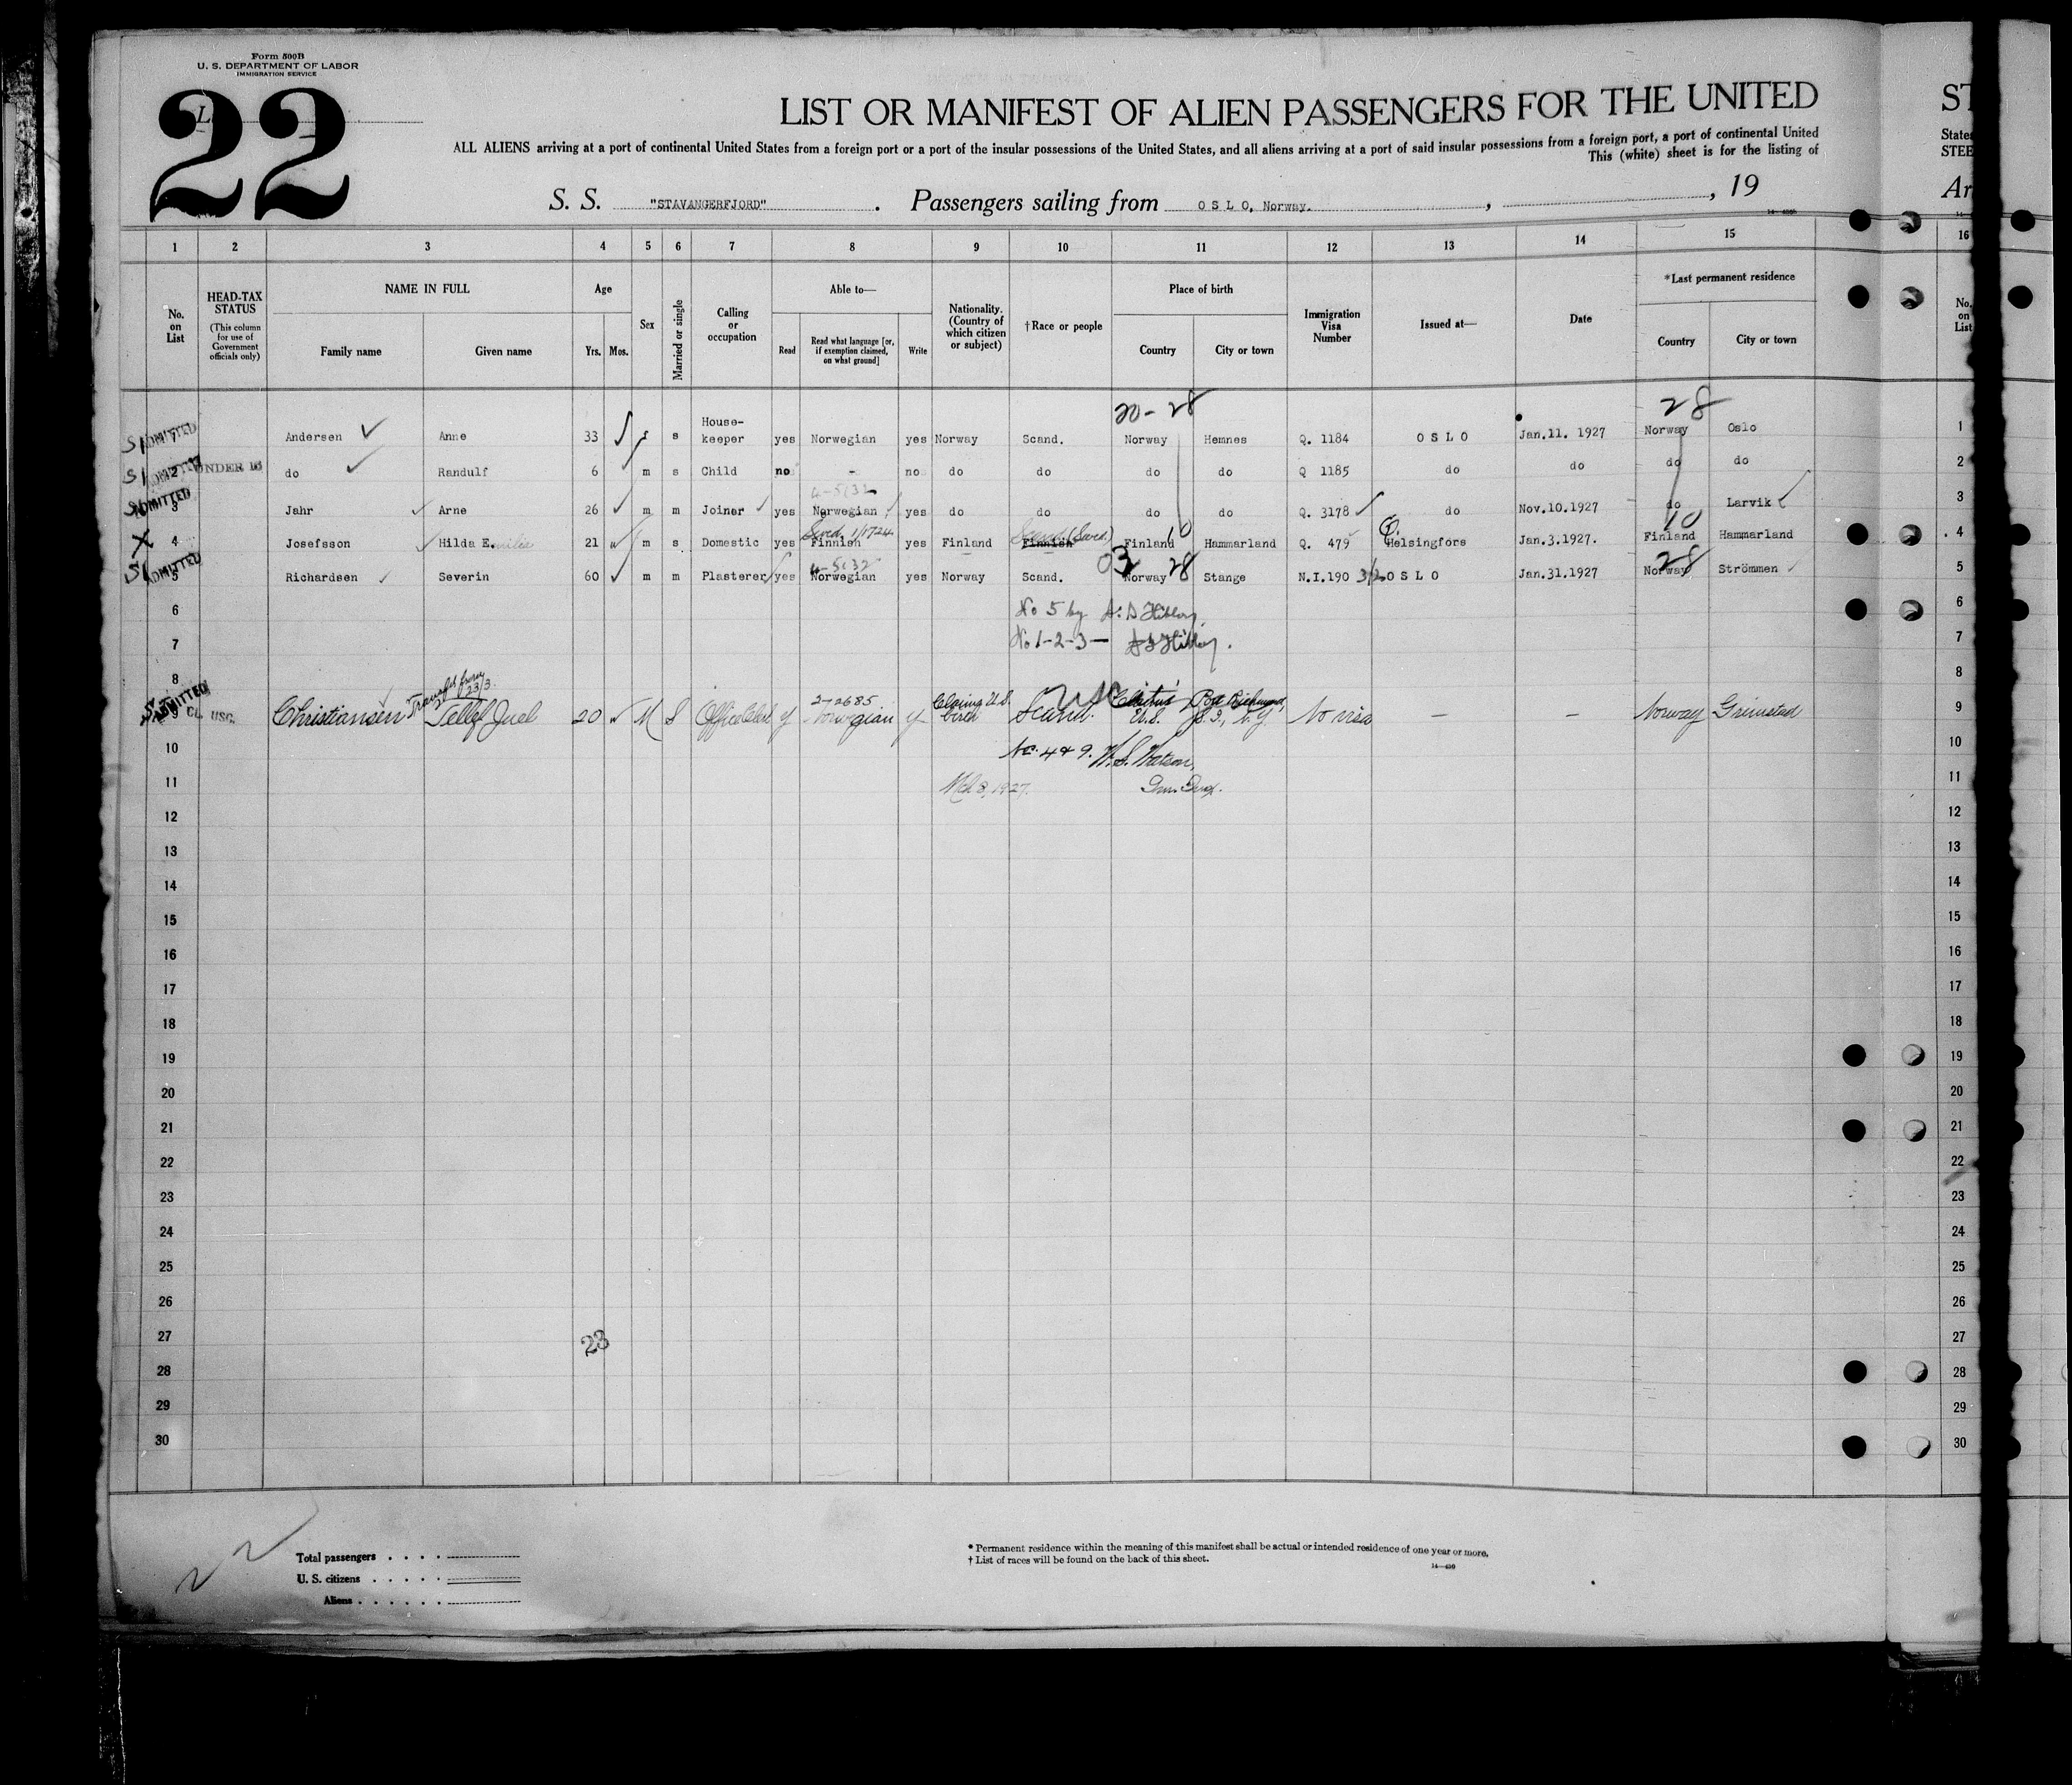 Form 500B
U. S. DEPARTMENT OF LABOR
IMMIGRATION SERVICE
22
LIST OR MANIFEST OF ALIEN PASSENGERS FOR THE UNITED
ALL ALIENS arriving at a port of continental United States from a foreign port or a port of the insular possessions of the United States, and all aliens arriving at a port of said insular possessions from a foreign port, a port of continental United
This (white) sheet is for the listing of
S. S. "STAVANGERFJORD". Passengers sailing from O S L O, Norway. , , 19
ST
States
STEE
Ar
1 2 3 4 5 6 7 8 9 10 11 12 13 14 15 16
No. on List
HEAD-TAX STATUS
(This column for use of Government officials only)
NAME IN FULL
Family name Given name
Age
Yrs. Mos.
Sex
Married or single
Calling or occupation
Able to—
Read Read what language [or, if exemption claimed, on what ground] Write
Nationality. (Country of which citizen or subject)
†Race or people
Place of birth
Country City or town
Immigration Visa Number
Issued at—
Date
*Last permanent residence
Country City or town
No. on List
20-28 28
ADMITTED 1 Andersen Anne 33 f s House-keeper yes Norwegian yes Norway Scand. Norway Hemnes Q. 1184 O S L O Jan.11. 1927 Norway Oslo 1
ADMITTED 2 UNDER 16 do Randulf 6 m s Child no - no do do do do Q 1185 do do do do 2
4-5132
ADMITTED 3 Jahr Arne 26 m m Joiner yes Norwegian yes do do do do Q. 3178 do Nov.10.1927 do Larvik 3
Swed. 1/1724 Scand. (Swed.) 10 10
X 4 Josefsson Hilda E. 21 m s Domestic yes Finnish yes Finland Finnish Finland Hammarland Q. 479 Helsingfors Jan.3.1927. Finland Hammarland 4
4-5132 03 28 28
ADMITTED 5 Richardsen Severin 60 m m Plasterer yes Norwegian yes Norway Scand. Norway Stange N.I.190 O S L O Jan.31.1927 Norway Strömmen 5
6 No 5 by 6
7 No 1-2-3— 7
8 8
Transfd from 23/3
2-72685 Claims U.S. birth USC
ADMITTED 9 CL. USC. Christiansen Juel 20 M S Office Clerk y Norwegian y Scand. U.S. No visa — — Norway Grimstad 9
10 No. 4 & 9. W. S. Watson, 10
11 Mch 8, 1927. 11
12 12
13 13
14 14
15 15
16 16
17 17
18 18
19 19
20 20
21 21
22 22
23 23
24 24
25 25
26 26
27 23 27
28 28
29 29
30 30
Total passengers . . . .
U. S. citizens . . . . .
Aliens . . . . . .
* Permanent residence within the meaning of this manifest shall be actual or intended residence of one year or more.
† List of races will be found on the back of this sheet.